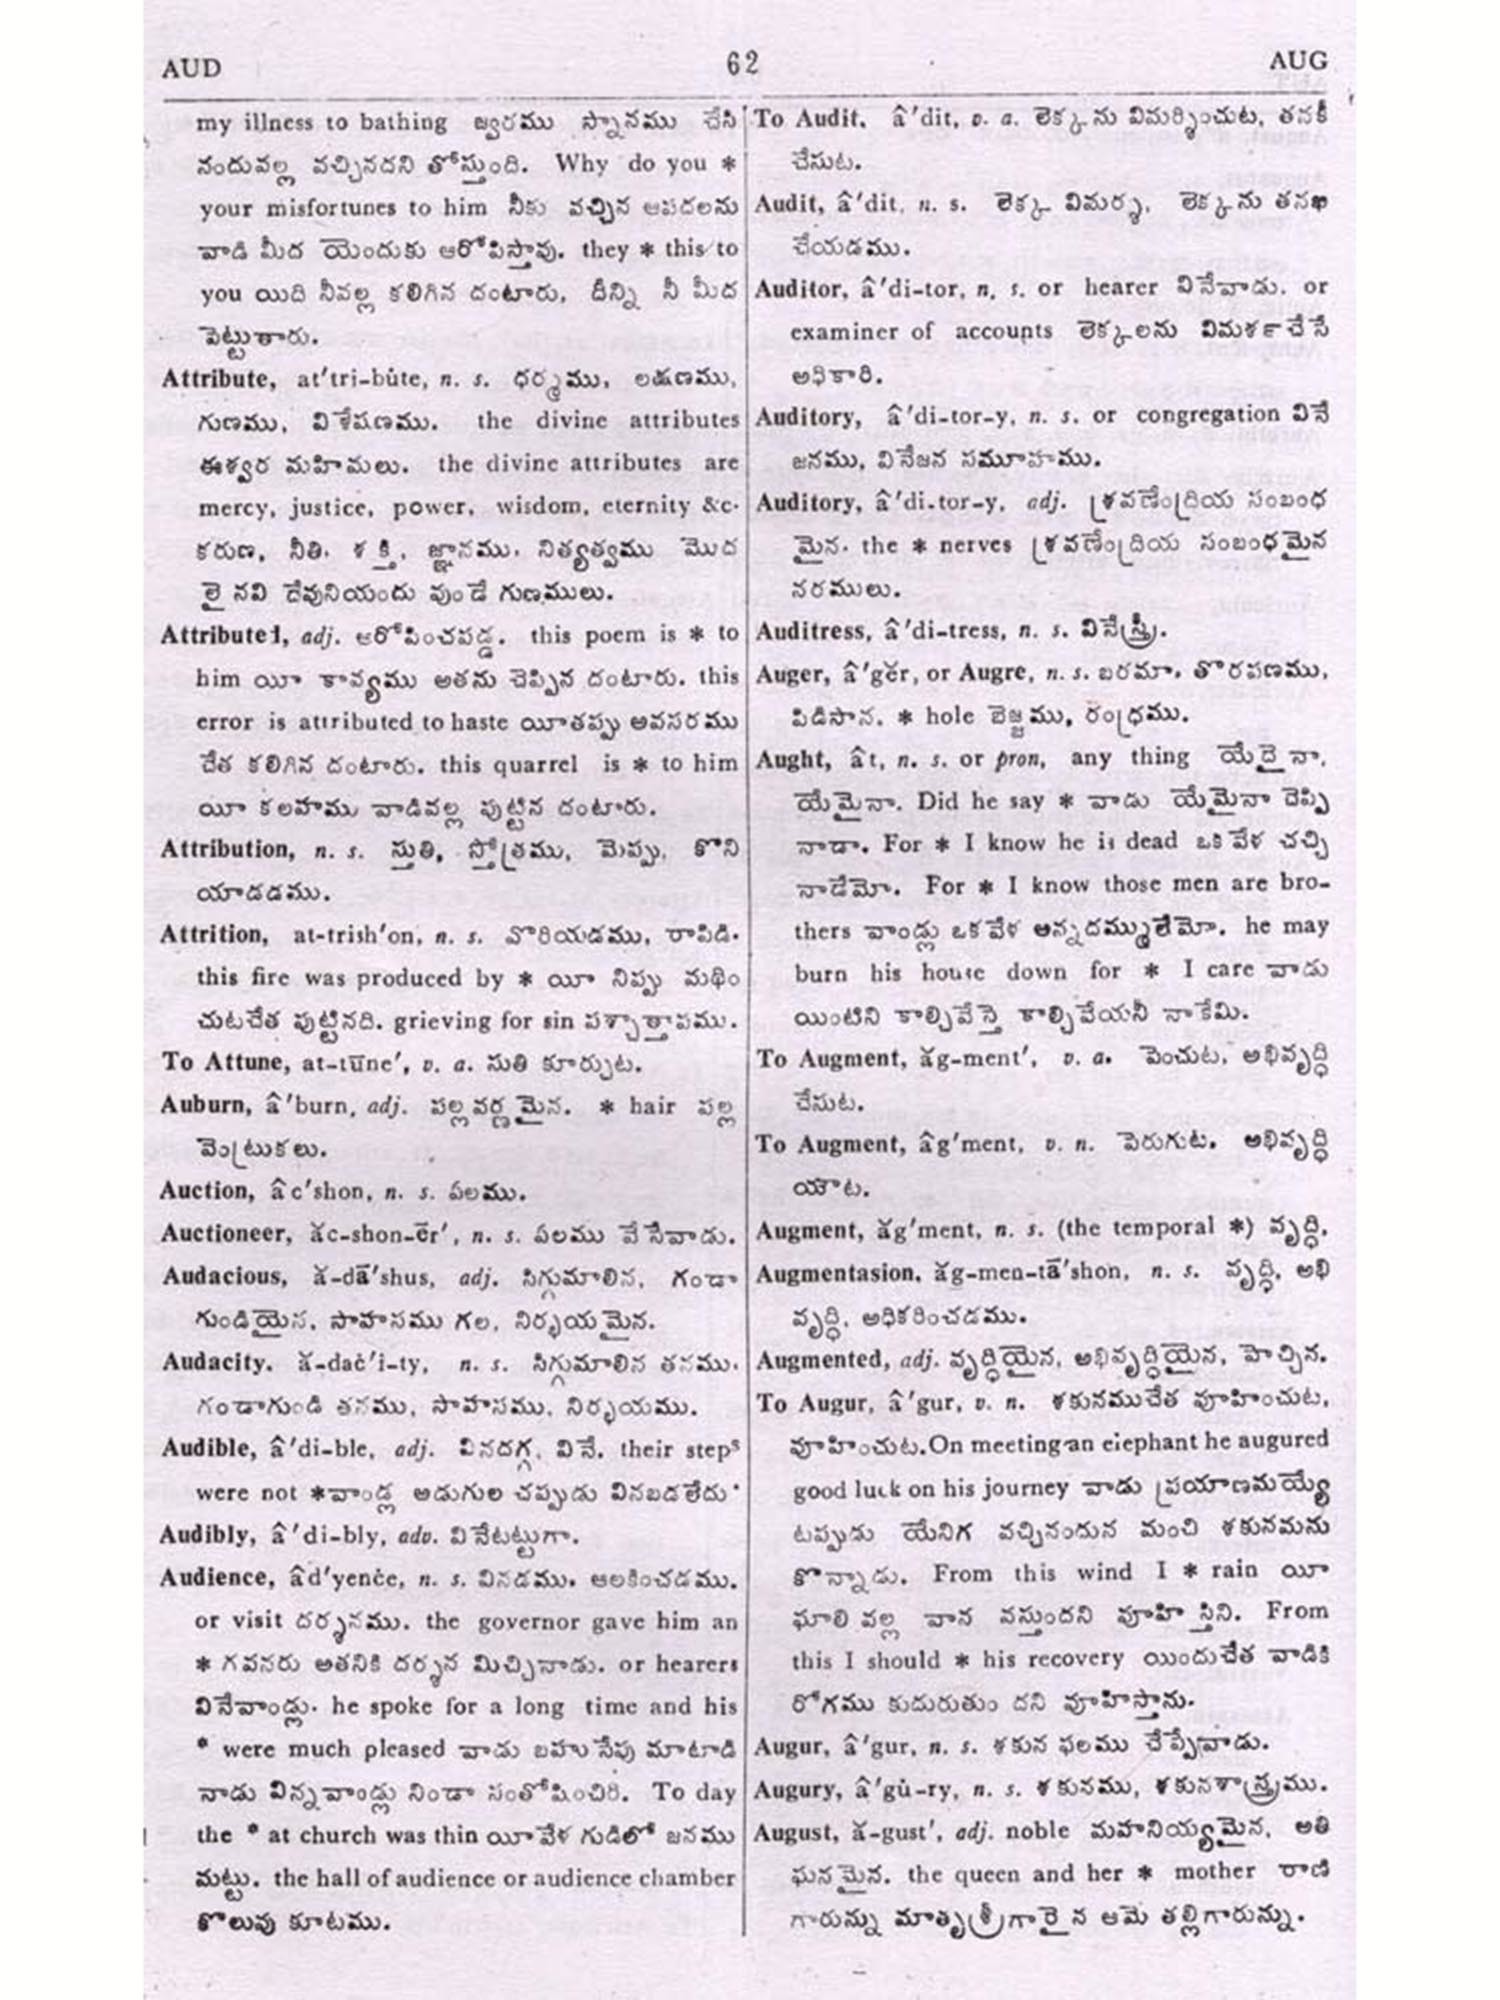 AUD 62 AUG
my illness to bathing జ్వరము స్నానము చేసి
నందువల్ల వచ్చినదని తోస్తుంది. Why do you *
your misfortunes to him నీకు వచ్చిన ఆపదలను
వాడి మీద యెందుకు ఆరోపిస్తావు. they * this to
you యిది నీవల్ల కలిగిన దంటారు, దీన్ని నీ మీద
పెట్టుతారు.
Attribute, at'tri-bůte, n. s. ధర్మము, లక్షణము,
గుణము, విశేషణము. the divine attributes
ఈశ్వర మహిమలు. the divine attributes are
mercy, justice, power, wisdom, eternity &c.
కరుణ, నీతి, శక్తి, జ్ఞానము, నిత్యత్వము మొద
లైనవి దేవునియందు వుండే గుణములు.
Attributed, adj. ఆరోపించపడ్డ. this poem is * to
him యీ కావ్యము అతను చెప్పిన దంటారు. this
error is attributed to haste యీతప్పు అవసరము
చేత కలిగిన దంటారు. this quarrel is * to him
యీ కలహము వాడివల్ల పుట్టిన దంటారు.
Attribution, n. s. స్తుతి, స్తోత్రము, మెప్పు, కొని
యాడడము.
Attrition, at-trish'on, n. s. వొరియడము, రాపిడి.
this fire was produced by * యీ నిప్పు మథిం
చుటచేత పుట్టినది. grieving for sin పశ్చాత్తాపము.
To Attune, at-tūne', v. a. సుతి కూర్చుట.
Auburn, â'burn, adj. పల్లవర్ణమైన. * hair పల్ల
వెంట్రుకలు.
Auction, âc'shon, n. s. ఏలము.
Auctioneer, ăc-shon-ēr', n. s. ఏలము వేసేవాడు.
Audacious, ă-dā'shus, adj. సిగ్గుమాలిన, గండా
గుండియైన, సాహసము గల, నిర్భయమైన.
Audacity. ă-daċ'i-ty, n. s. సిగ్గుమాలిన తనము.
గండాగుండి తనము, సాహసము, నిర్భయము.
Audible, â'di-ble, adj. వినదగ్గ, వినే. their steps
were not * వాండ్ల అడుగుల చప్పుడు వినబడలేదు.
Audibly, â'di-bly, adv. వినేటట్టుగా.
Audience, âd'yenċe, n. s. వినడము. ఆలకించడము.
or visit దర్శనము. the governor gave him an
* గవనరు అతనికి దర్శన మిచ్చినాడు. or hearers
వినేవాండ్లు. he spoke for a long time and his
* were much pleased వాడు బహుసేపు మాటాడి
నాడు విన్నవాండ్లు నిండా సంతోషించిరి. To day
the * at church was thin యీవేళ గుడిలో జనము
మట్టు. the hall of audience or audience chamber
కొలువు కూటము.
To Audit. â'dit, v. a. లెక్కను విమర్శించుట, తనకీ
చేసుట.
Audit, â'dit, n. s. లెక్క విమర్శ, లెక్కను తనఖి
చేయడము.
Auditor, â'di-tor, n. s. or hearer వినేవాడు. or
examiner of accounts లెక్కలను విమర్శచేసే
అధికారి.
Auditory, â'di-tor-y, n. s. or congregation వినే
జనము, వినేజన సమూహము.
Auditory, â'di-tor-y, adj. శ్రవణేంద్రియ సంబంధ
మైన. the * nerves శ్రవణేంద్రియ సంబంధమైన
నరములు.
Auditress, â'di-tress, n. s. వినేస్త్రీ.
Auger, â'gĕr, or Augre, n. s. బరమా, తొరపణము,
పిడిసాన. * hole బెజ్జము, రంధ్రము.
Aught, ât, n. s. or pron, any thing యేదైనా,
యేమైనా. Did he say * వాడు యేమైనా చెప్పి
నాడా. For * I know he is dead ఒకివేళ చచ్చి
నాడేమో. For * I know those men are bro-
thers వాండ్లు ఒకవేళ అన్నదమ్ములేమో. he may
burn his house down for * I care వాడు
యింటిని కాల్చివేస్తె కాల్చివేయనీ నాకేమి.
To Augment, ăg-ment', v. a. పెంచుట, అభివృద్ధి
చేసుట.
To Augment, âg'ment, v. n. పెరుగుట. అభివృద్ధి
యౌట.
Augment, ăg'ment, n. s. (the temporal *) వృద్ధి,
Augmentasion, ăg-men-tā'shon, n. s. వృద్ధి, అభి
వృద్ధి, అధికరించడము.
Augmented, adj. వృద్ధియైన, అభివృద్ధియైన, హెచ్చిన.
To Augur, â'gur, v. n. శకునముచేత వూహించుట,
వూహించుట. On meeting an elephant he augured
good luck on his journey వాడు ప్రయాణమయ్యే
టప్పుడు యేనిగ వచ్చినందున మంచి శకునమను
కొన్నాడు. From this wind I * rain యీ
ఘాలి వల్ల వాన వస్తుందని వూహిస్తిని. From
this I should * his recovery యిందుచేత వాడికి
రోగము కుదురుతుం దని వూహిస్తాను.
Augur, â'gur, n. s. శకున ఫలము చేప్పేవాడు.
Augury, â'gů-ry, n. s. శకునము, శకునశాస్త్రము.
August, ă-gust', adj. noble మహనియ్యమైన, అతి
ఘనమైన. the queen and her * mother రాణి
గారున్ను మాతృశ్రీగారైన ఆమె తల్లిగారున్ను.